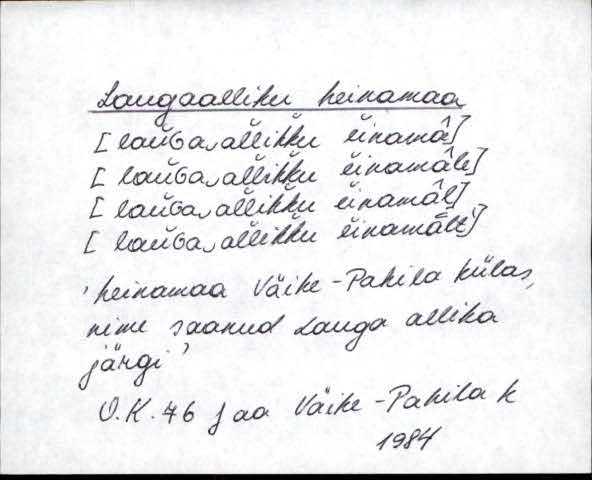 Laugaalliku heinamaa
[lau̬ɢa‿ al̆likku ĕinamā̂]
[lau̬ɢa‿ al̆likku ĕinamâle]
[lau̬ɢa‿ al̆likku ĕinamâl]
[lau̬ɢa‿ al̆likku ĕinamâlt]
'heinamaa Väike-Pahila külas,
nime saanud Lauga allika
järgi'
O.K. 76 j aa Väike-Pahila k
1984